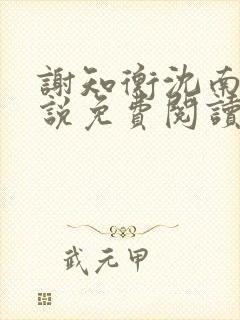 謝知衡沈南
說免費閱讀
武元甲